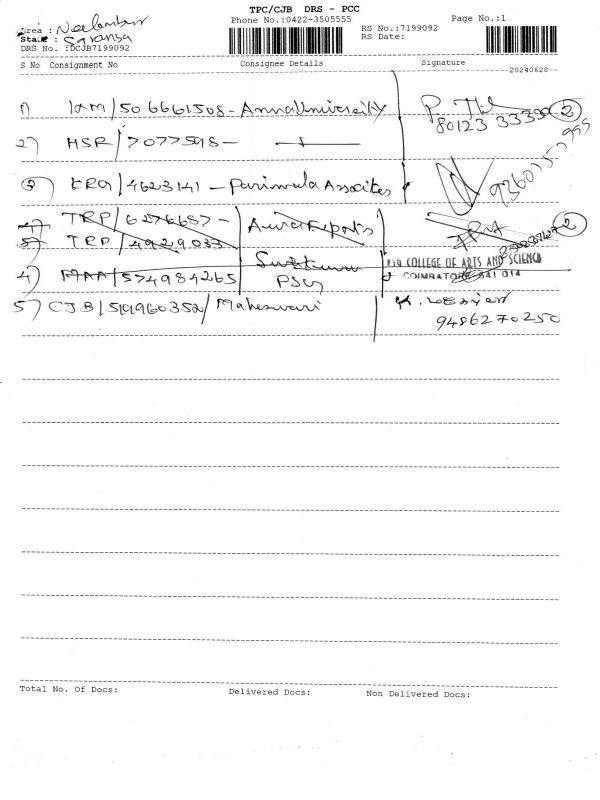 TPC/CJB DRS - PCC
Phone No.:0422-3505555
Page No.:1
Area : Neelambur
RS No.:7199092
State :
RS Date:
DRS No. :DCJB7199092
S No Consignment No Consignee Details Signature
20240628
1) IXM/506661508 - Anna University
80123 33330 2
2) HSR/7077598 -
3) ERO/4623141 - Parimala Assocites
4) TRP/6276657 -
5) TRP/4929033
2
4) MAA/574984265 PSG
PSG COLLEGE OF ARTS AND SCIENCE
COIMBATORE 641 014
5) CJB/519960352/ Maheswari
9486270250
Total No. Of Docs: Delivered Docs: Non Delivered Docs: